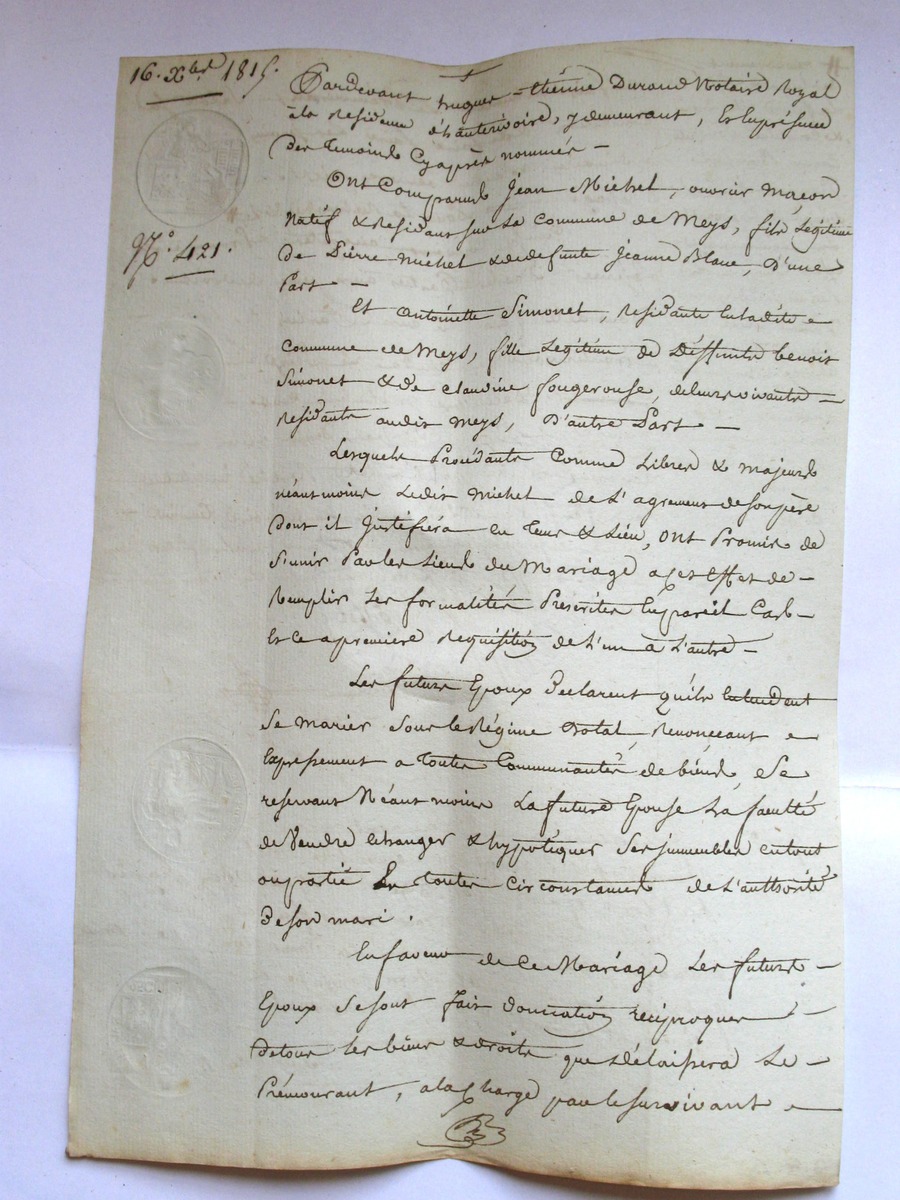 16. Xbre 1815.
Pardevant hugues-étienne Durand Notaire Royal
à la Residence d'hauterivoire, y demeurant, En la présence
Des Temoins Cyaprès nommés -
Ont Comparus Jean Michel, ouvrier Maçon
Natif & residant sur La Commune de Meys, fils Légitime
N.o 421.
De Pierre Michel & de defunte Jeanne Blanc, D'une
Part -
Et Antoinette Simonet, residante en Ladite
Commune de Meys, fille Légitime de Deffunts benoit
Simonet & de Claudine fougerouse, de leur vivants
Residants audit Meys, D'autre Part -
Lesquels Procédants Comme Libres & majeurs
néantmoins Ledit Michel de L'agrément de son père
Dont il Justifiéra en Tems & Lieu, Ont Promis de
S'unir Par les Liens du Mariage a cet Effet de
Remplir Les formalités Prescrites En pareil Cas
Et Ce a première Requisition de L'un à L'autre -
Les futurs Epoux Déclarent qu'ils Entendent
Se marier Sous le Régime Dotal, Renonçant
Expressement a toutes Communautés de biens, Se
reservant Néantmoins La future Epouse La faculté
de Vendre échanger & hypotéquer Ses immeubles en tout
ou partie En toutes Circonstances de L'authorité
De son mari.
En faveur de Ce Mariage Les futurs
Epoux Se sont fait donnation réciproques
De tous Les biens & droits que Délaissera Le
Prémourant, a la Charge par le survivant